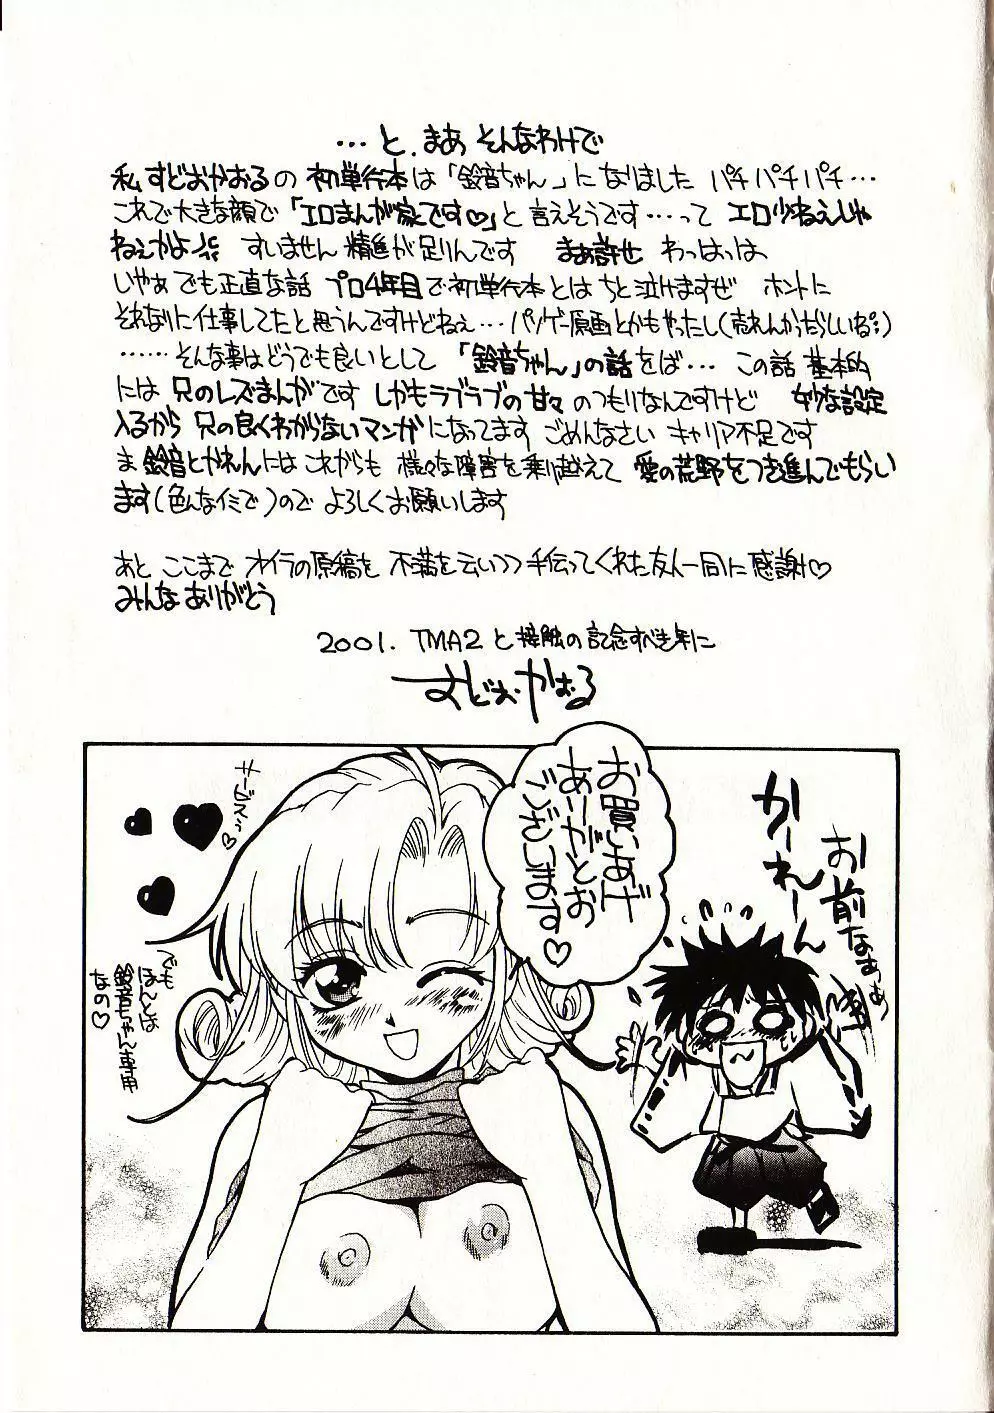 …と、まあ そんなわけで
私 すどおかおるの 初単行本は「鈴音ちゃん」になりました パチパチパチ…
これで大きな顔で「エロまんが家です♡」と言えそうです…って エロ少ねえじゃ
ねぇかよ すいません 精進が足りんです まぁ許せ わっはっは
いやぁ でも正直な話 プロ4年目で初単行本とは ちと泣けますぜ ホントに
それなりに仕事してたと思うんですけどねぇ…パソゲー原画とかもやったし(売れんかったらしいね)
……そんな事はどうでも良いとして 「鈴音ちゃん」の話をば… この話 基本的
には 只のレズまんがです しかもラブラブの甘々のつもりなんですけど 妙な設定
入るから 只の良くわからないマンガになってます ごめんなさい キャリア不足です
ま 鈴音とかれんには これからも 様々な障害を乗り越えて 愛の荒野をつき進んでもらい
ます(色んなイミで)ので よろしくお願いします
あと ここまで オイラの原稿を 不満を云いつつ手伝ってくれた友人一同に 感謝♡
みんなありがとう
2001. TMA2 と接触の記念すべき年に
すどおかおる
お買いあげ
ありがとお
ございます♡
サービスぅ♡
でも
ほんとは
鈴音ちゃん専用
なの♡
かーれーん
お前なあぁ